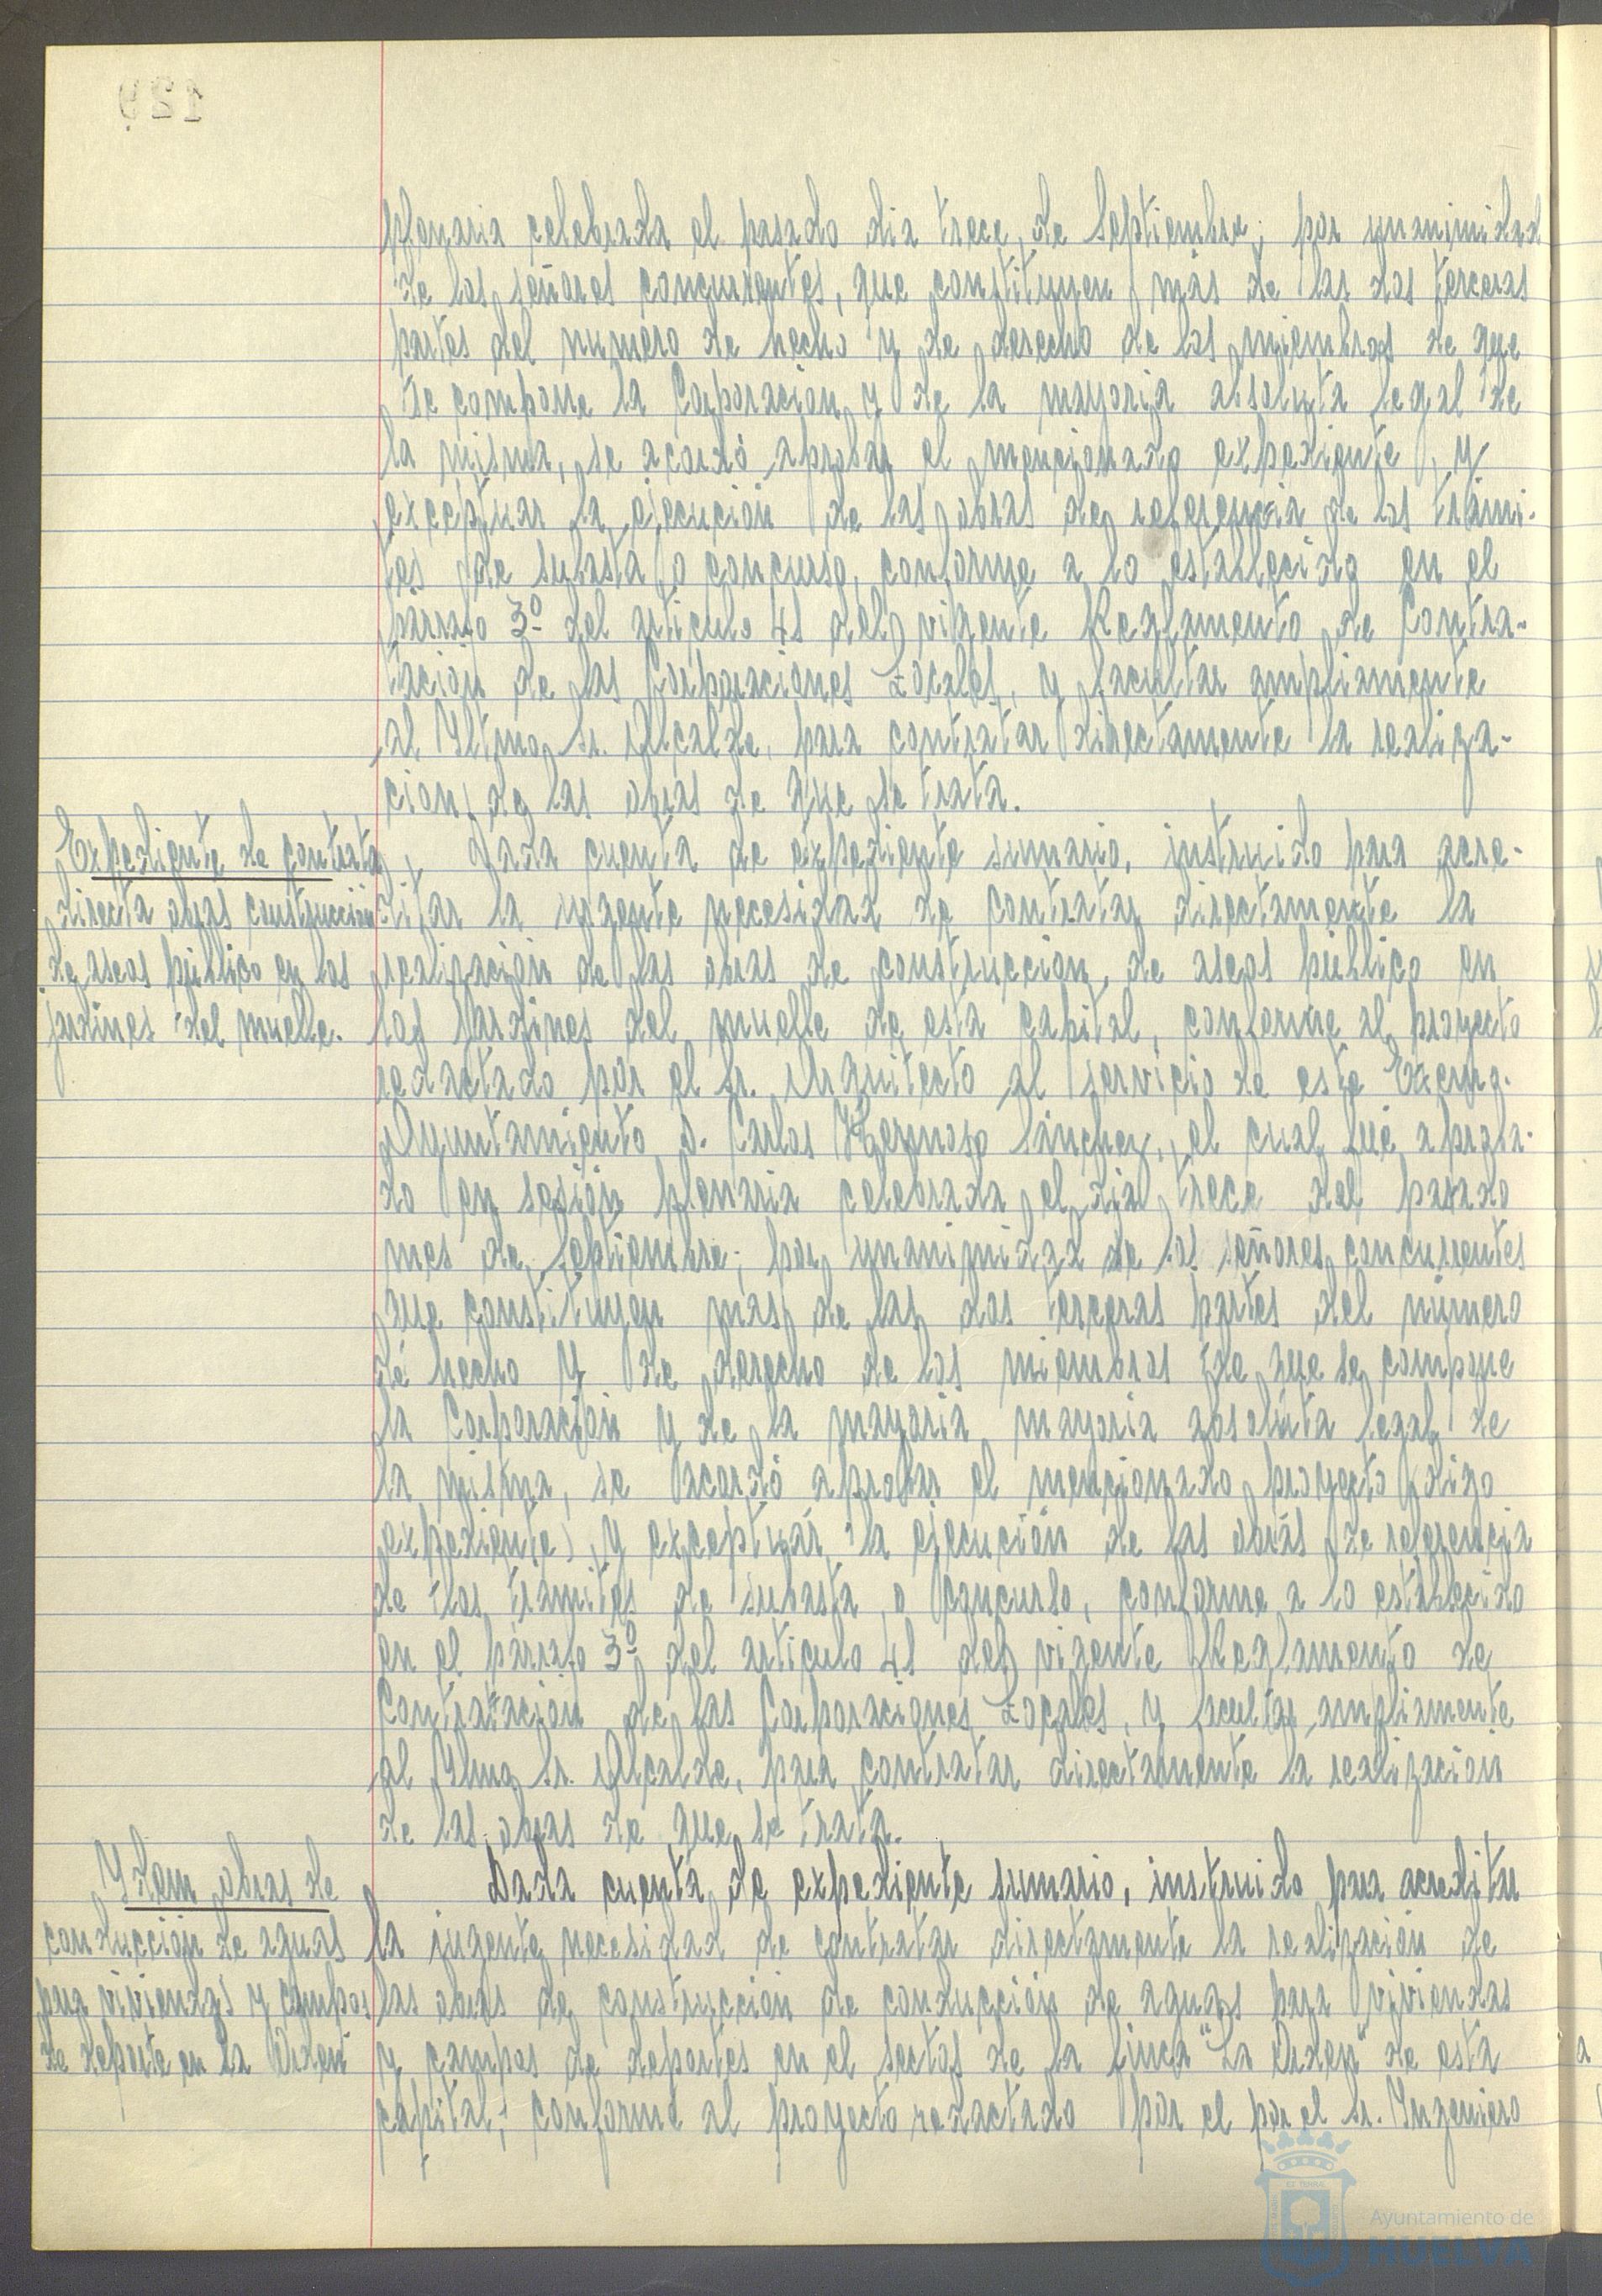 129
plenaria celebrada el pasado dia trece de Septiembre; por unanimidad
de los señores concurrentes, que constituyen más de las dos terceras
partes del numero de hecho y de derecho de los miembros de que
se compone la Corporación y de la mayoria absoluta legal de
la misma, se acordó aprobar el mencionado expediente, y
exceptuar la ejecución de las obras de referencia de los trámi-
tes de subasta o concurso, conforme a lo establecido en el
párrafo 3º del articulo 41 del vigente Reglamento de Contra-
tación de las Corporaciones Locales, y facultar ampliamente
al Iltmo. Sr. Alcalde, para contratar directamente la realiza-
ción de las obras de que se trata.
Expediente de contrata
directa obras construcción
de aseos público en los
jardines del muelle.
Dada cuenta de expediente sumario, instruido para acre-
ditar la urgente necesidad de contratar directamente la
realización de las obras de construcción de aseos público en
los Jardines del muelle de esta capital, conforme al proyecto
redactado por el Sr. Arquitecto al servicio de este Excmo.
Ayuntamiento D. Carlos Hermoso Sánchez, el cual fué aproba-
do en sesión plenaria celebrada el dia trece del pasado
mes de Septiembre; por unanimidad de los señores concurrentes
que constituyen mas de las dos terceras partes del número
de hecho y de derecho de los miembros de que se compone
la Corporación y de la mayoria mayoria absoluta legal de
la misma, se acordó aprobar el mencionado proyecto (digo
expediente), y exceptuar la ejecución de las obras de referencia
de los trámites de subasta o concurso, conforme a lo establecido
en el párrafo 3º del articulo 41 del vigente Reglamento de
Contratación de las Corporaciones Locales, y facultar ampliamente
al Ilmo Sr. Alcalde, para contratar directamente la realización
de las obras de que se trata.
Idem obras de
conducción de aguas
para viviendas y campos
de deporte en la Orden
Dada cuenta de expediente sumario, instruido para acreditar
la urgente necesidad de contratar directamente la realización de
las obras de construcción de conducción de aguas para viviendas
y campos de deportes en el sector de la finca "La Orden" de esta
capital, conforme al proyecto redactado por el por el Sr. Ingeniero
Ayuntamiento de
HUELVA